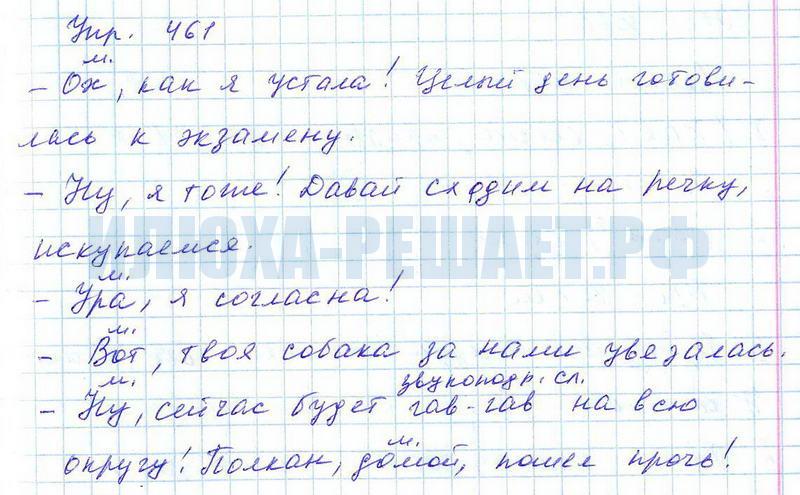 Упр. 461
м.
– Ох, как я устала! Целый день готови-
лась к экзамену.
– Ну, я тоже! Давай сходим на речку,
искупаемся.
ИЛЮХА-РЕШАЕТ.РФ
м.
– Ура, я согласна!
м.
– Вот, твоя собака за нами увязалась.
м. звукоподр. сл.
– Ну, сейчас будет гав-гав на всю
м.
округу! Полкан, домой, пошел прочь!